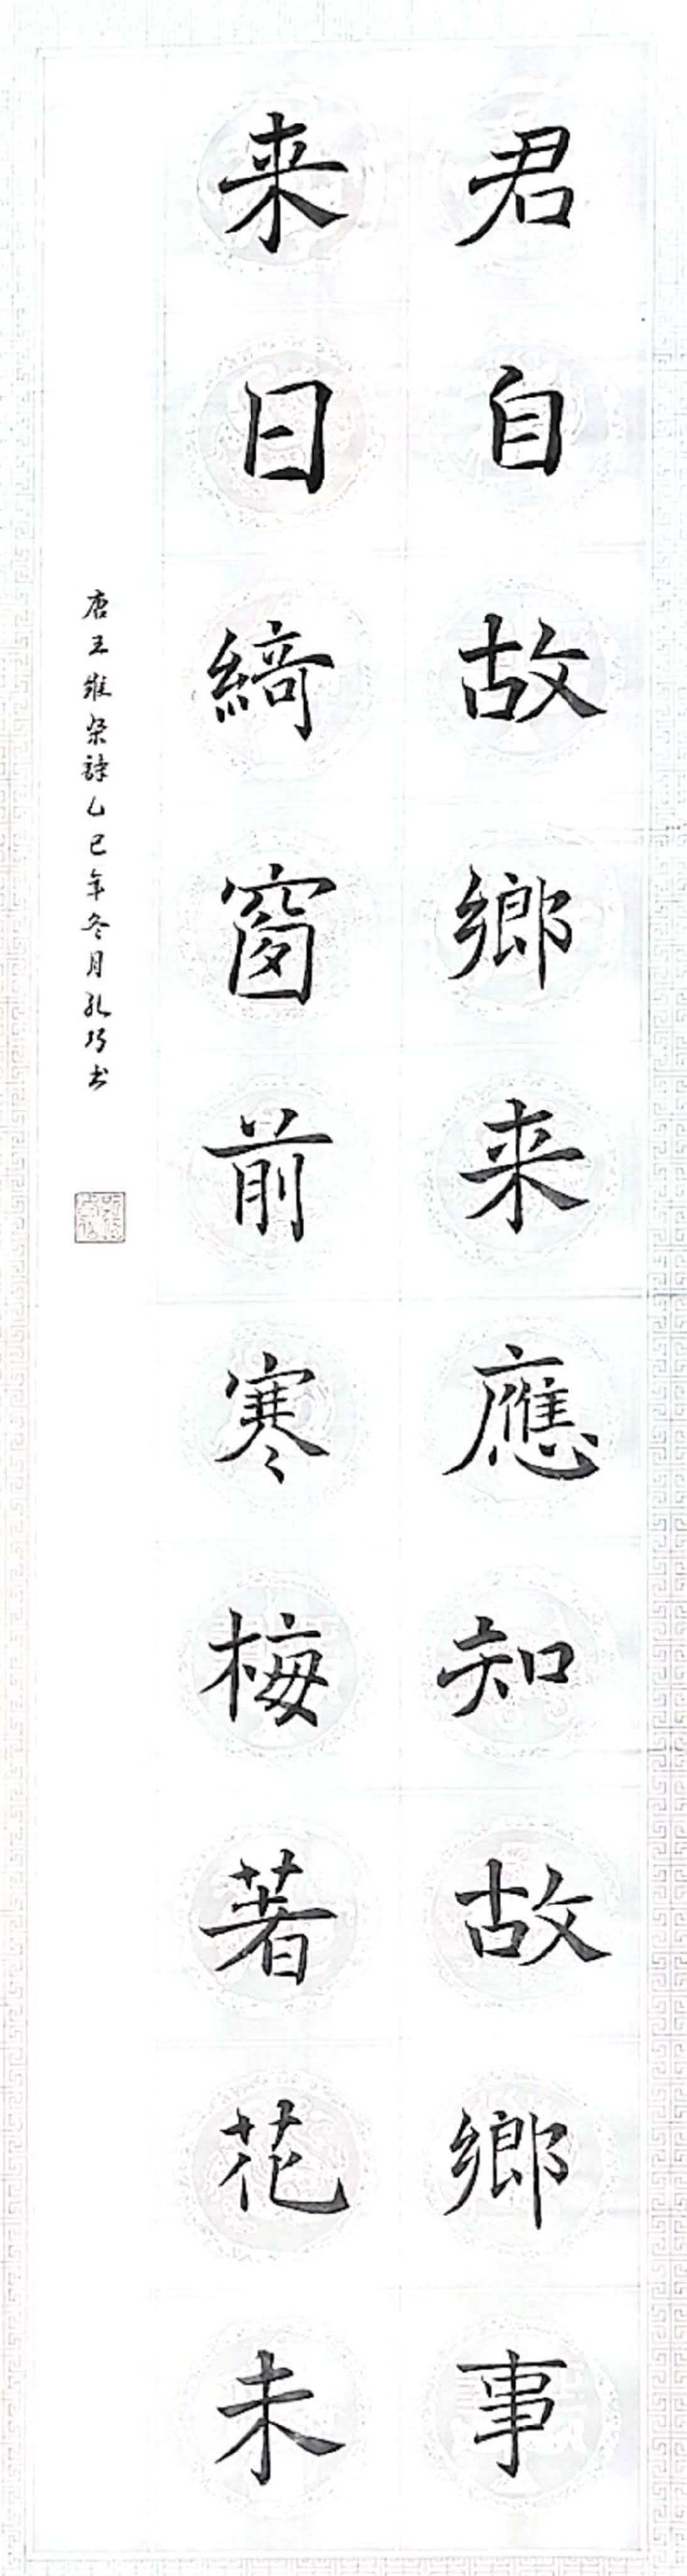 君自故鄉来應知故鄉事
来日綺窗前寒梅著花未
唐王維雜詩乙巳年冬月孔巧书